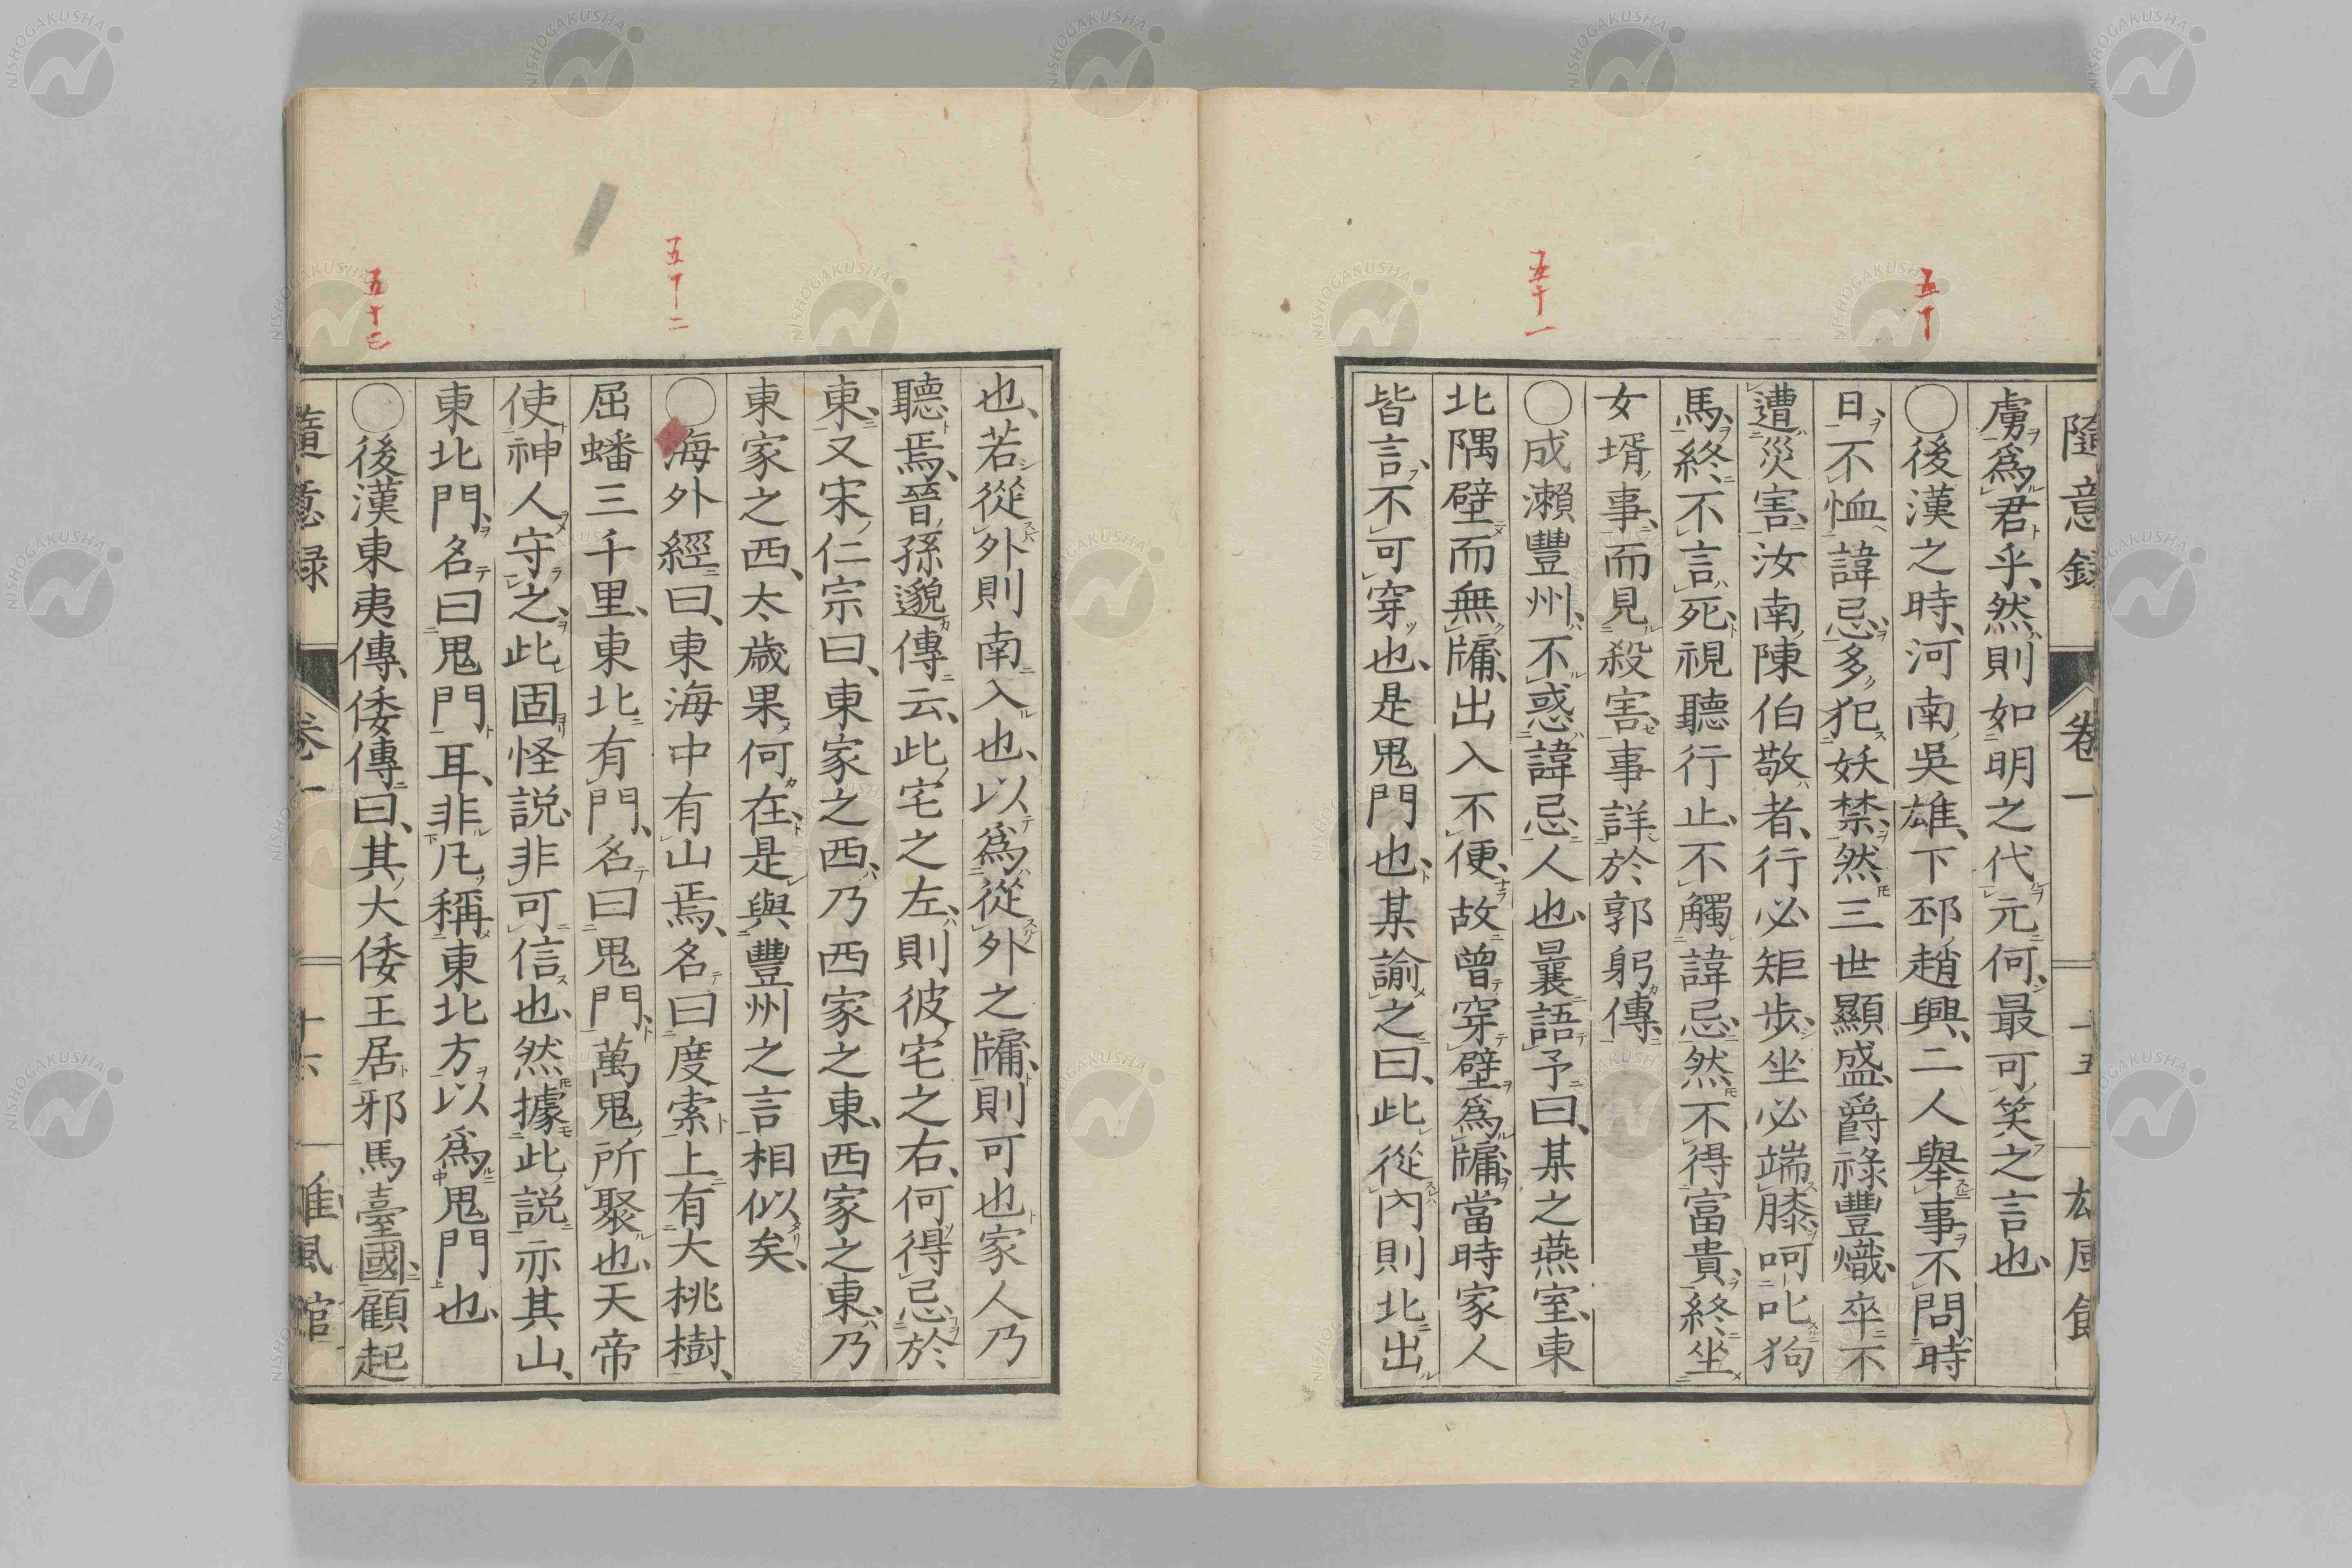 隨意錄 卷一 十五
五十
五十一
虜爲君乎、然則如明之代元何、最可笑之言也、
〇後漢之時、河南吳雄、下邳趙興、二人舉事不問時
日、不恤諱忌、多犯妖禁、然三世顯盛、爵祿豐熾、卒不
遭災害、汝南陳伯敬者、行必矩步、坐必端膝、呵叱狗
馬、終不言死、視聽行止、不觸諱忌、然不得富貴、終坐
女壻事、而見殺害、事詳於郭躬傳、
〇成瀨豐州、不惑諱忌、人也、曩語予曰、某之燕室、東
北隅壁而無牖、出入不便、故曾穿壁爲牖、當時家人
皆言、不可穿也、是鬼門也、某諭之曰、此從內則北出
五十二
五十三
也、若從外則南入也、以爲從外之牖、則可也家人乃
聽焉、晉孫邈傳云、此宅之左、則彼宅之右、何得忌於
東、又宋仁宗曰、東家之西、乃西家之東、西家之東、乃
東家之西、太歲果何在、是與豐州之言相似矣、
〇海外經曰、東海中有山焉、名曰度索、上有大桃樹、
屈蟠三千里、東北有門、名曰鬼門、萬鬼所聚也、天帝
使神人守之、此固怪說、非可信也、然據此說、亦其山、
東北門、名曰鬼門耳、非凡稱東北方以爲鬼門也、
〇後漢東夷傳、倭傳曰、其大倭王居邪馬臺國、顧起
卷一